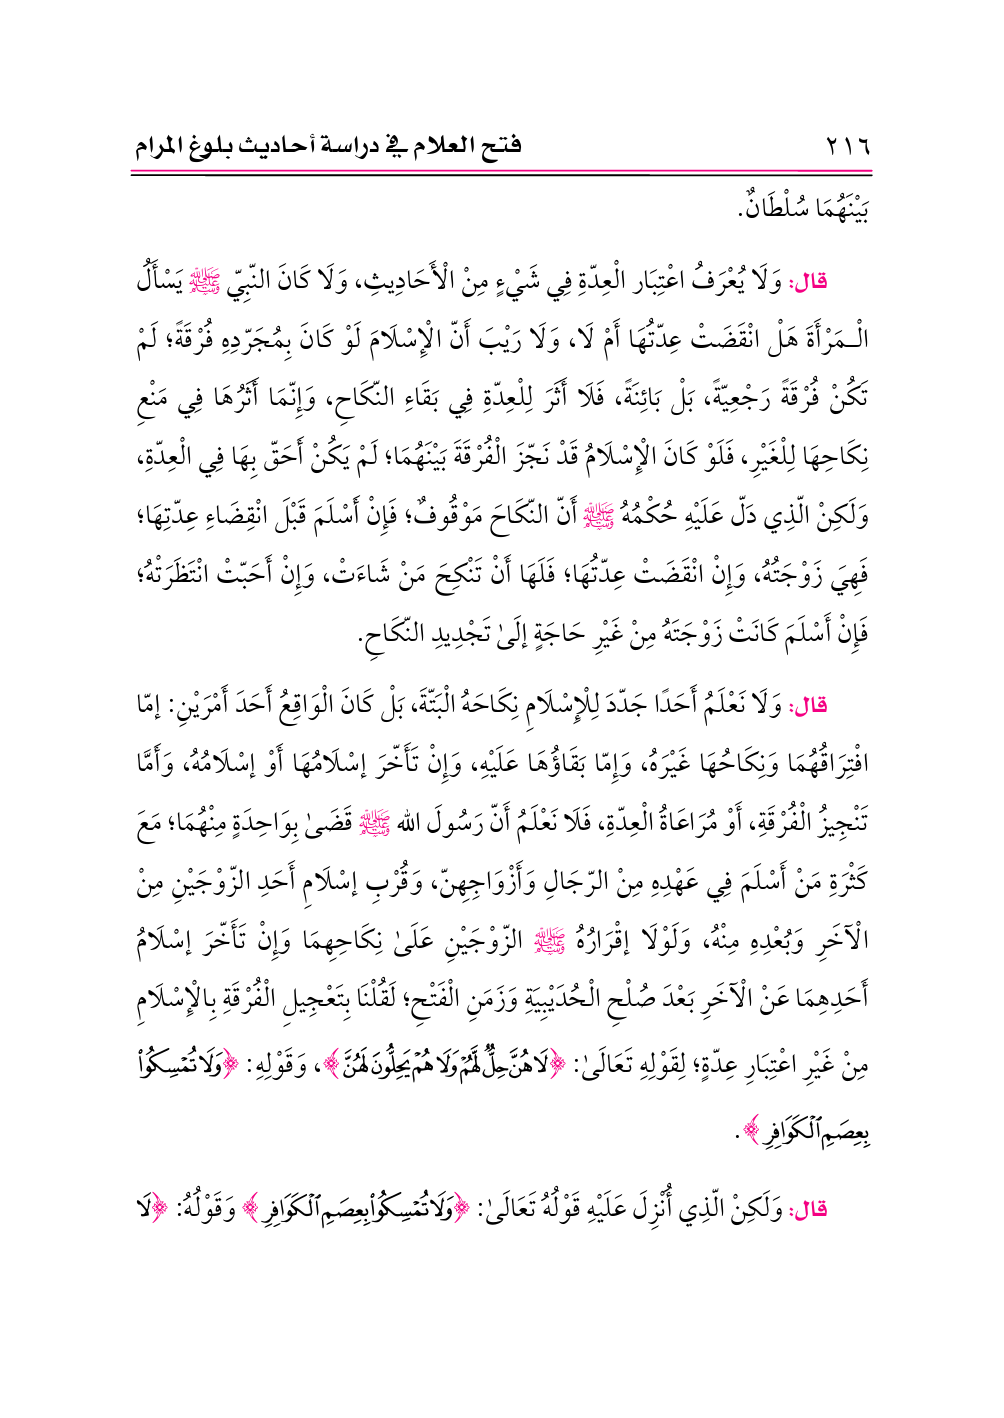 ٢١٦
فتح العلام في دراسة أحاديث بلوغ المرام
بَيْنَهُمَا سُلْطَانٌ.
قال: وَلَا يُعْرَفُ اعْتِبَار الْعِدّةِ فِي شَيْءٍ مِنْ الْأَحَادِيثِ، وَلَا كَانَ النّبِيّ ﷺ يَسْأَلُ
الْـمَرْأَةَ هَلْ انْقَضَتْ عِدّتُهَا أَمْ لَا، وَلَا رَيْبَ أَنّ الْإِسْلَامَ لَوْ كَانَ بِمُجَرّدِهِ فُرْقَةً؛ لَمْ
تَكُنْ فُرْقَةً رَجْعِيّةً، بَلْ بَائِنَةً، فَلَا أَثَرَ لِلْعِدّةِ فِي بَقَاءِ النّكَاحِ، وَإِنّمَا أَثَرُهَا فِي مَنْعِ
نِكَاحِهَا لِلْغَيْرِ، فَلَوْ كَانَ الْإِسْلَامُ قَدْ نَجّزَ الْفُرْقَةَ بَيْنَهُمَا؛ لَمْ يَكُنْ أَحَقّ بِهَا فِي الْعِدّةِ،
وَلَكِنْ الّذِي دَلّ عَلَيْهِ حُكْمُهُ ﷺ أَنّ النّكَاحَ مَوْقُوفٌ؛ فَإِنْ أَسْلَمَ قَبْلَ انْقِضَاءِ عِدّتِهَا؛
فَهِيَ زَوْجَتُهُ، وَإِنْ انْقَضَتْ عِدّتُهَا؛ فَلَهَا أَنْ تَنْكِحَ مَنْ شَاءَتْ، وَإِنْ أَحَبّتْ انْتَظَرَتْهُ؛
فَإِنْ أَسْلَمَ كَانَتْ زَوْجَتَهُ مِنْ غَيْرِ حَاجَةٍ إلَىٰ تَجْدِيدِ النّكَاحِ.
قال: وَلَا نَعْلَمُ أَحَدًا جَدّدَ لِلْإِسْلَامِ نِكَاحَهُ الْبَتّةَ، بَلْ كَانَ الْوَاقِعُ أَحَدَ أَمْرَيْنِ: إمّا
افْتِرَاقُهُمَا وَنِكَاحُهَا غَيْرَهُ، وَإِمّا بَقَاؤُهَا عَلَيْهِ، وَإِنْ تَأَخّرَ إسْلَامُهَا أَوْ إسْلَامُهُ، وَأَمَّا
تَنْجِيزُ الْفُرْقَةِ، أَوْ مُرَاعَاةُ الْعِدّةِ، فَلَا نَعْلَمُ أَنّ رَسُولَ الله ﷺ قَضَىٰ بِوَاحِدَةٍ مِنْهُمَا؛ مَعَ
كَثْرَةِ مَنْ أَسْلَمَ فِي عَهْدِهِ مِنْ الرّجَالِ وَأَزْوَاجِهِنّ، وَقُرْبِ إسْلَامِ أَحَدِ الزّوْجَيْنِ مِنْ
الْآخَرِ وَبُعْدِهِ مِنْهُ، وَلَوْلَا إقْرَارُهُ ﷺ الزّوْجَيْنِ عَلَىٰ نِكَاحِهِمَا وَإِنْ تَأَخّرَ إسْلَامُ
أَحَدِهِمَا عَنْ الْآخَرِ بَعْدَ صُلْحِ الْحُدَيْبِيَةِ وَزَمَنِ الْفَتْحِ؛ لَقُلْنَا بِتَعْجِيلِ الْفُرْقَةِ بِالْإِسْلَامِ
مِنْ غَيْرِ اعْتِبَارِ عِدّةٍ؛ لِقَوْلِهِ تَعَالَىٰ: ﴿لَا هُنَّ حِلٌّ لَّهُمْ وَلَا هُمْ يَحِلُّونَ لَهُنَّ﴾، وَقَوْلِهِ: ﴿وَلَا تُمْسِكُواْ
بِعِصَمِ ٱلْكَوَافِرِ﴾.
قال: وَلَكِنْ الّذِي أُنْزِلَ عَلَيْهِ قَوْلُهُ تَعَالَىٰ: ﴿وَلَا تُمْسِكُواْ بِعِصَمِ ٱلْكَوَافِرِ﴾ وَقَوْلُهُ: ﴿لَا